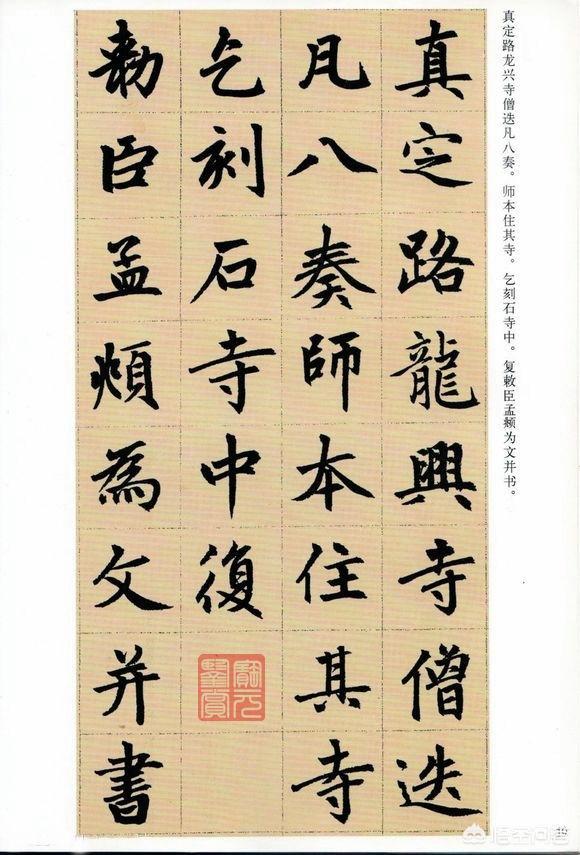 真定路龍興寺僧迭
凡八奏師本住其寺
乞刻石寺中復
勅臣孟頫為文并書
真定路龙兴寺僧迭凡八奏。师本住其寺。乞刻石寺中。复敕臣孟頫为文并书。
寶元鑒賞
19
悟空问答